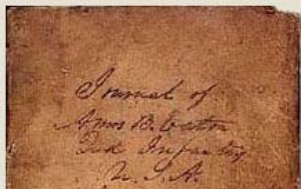 Journal of
Amos B. Eaton
2nd Infantry
U. S. A.